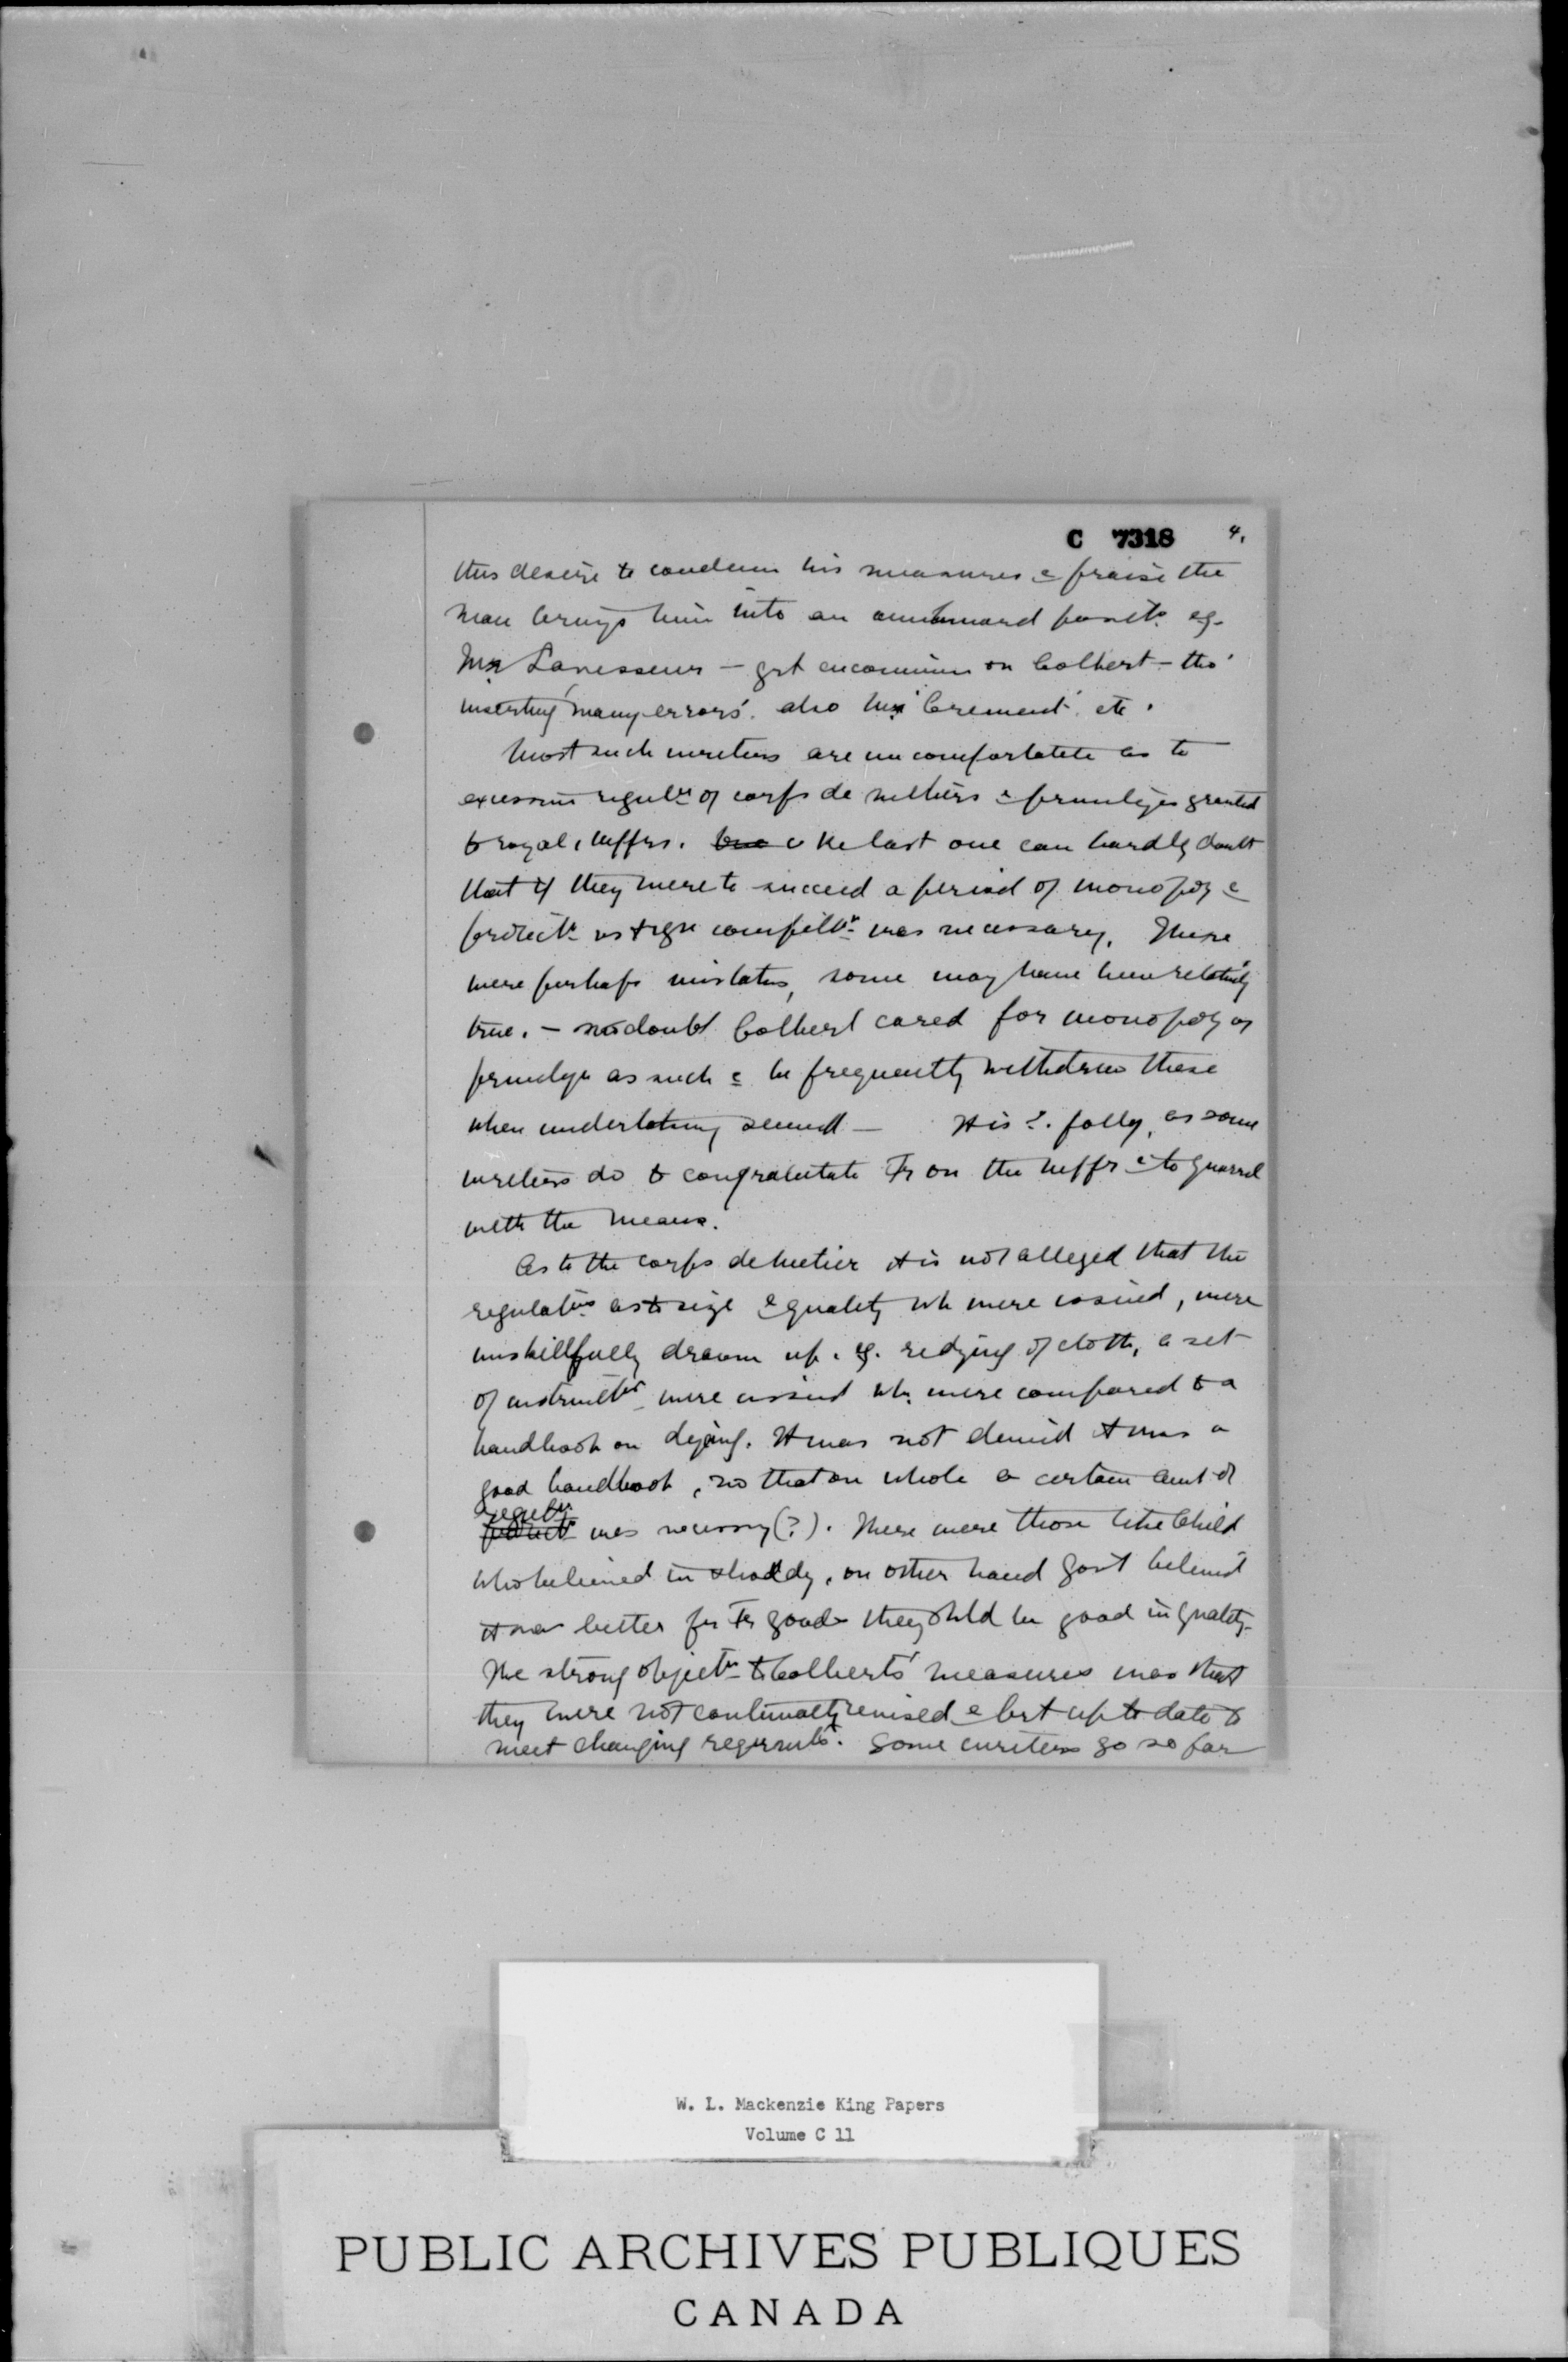 C 7318 4.
this desire to condemn his measures & praise the
man brings him into an awkward posit⁠n eg.
Levasseur – grt encomium on Colbert – tho'
inserting 'many errors'. also 'Clement' etc.
Most such writers are uncomfortable as to
excessive reguln of corps de métiers & privileges granted
to royal mffrs. the last one can hardly doubt
that if they were to succeed a period of monopoly &
protectn vs frgn competn was necessary. There
were perhaps mistakes, some may have been relatively
true. – no doubt Colbert cared for monopoly or
privilege as such & he frequently withdrew these
when undertaking seemed – It is folly, as some
writers do to congratulate Fr on the mffr & to quarrel
with the means.
As to the corps de metier it is not alleged that the
regulatns as to size & quality wh were issued, were
unskillfully drawn up. eg. redying of cloth, a set
of instructns were issued wh. were compared to a
handbook on dying. It was not denied it was a
good handbook, so that on whole a certain amt of
reguln was necessary (?). There were those like Child
who believed in shoddy, on other hand govt believed
it was better for Fr goods they shld be good in quality.
The strong objectn to Colbert's measures was that
they were not continually revised & kept up to date to
meet changing requirmts. Some writers go so far
W. L. Mackenzie King Papers
Volume C 11
PUBLIC ARCHIVES PUBLIQUES
CANADA